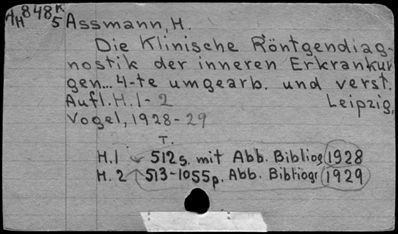 AH 848 K/5 Assmann, H.
Die Klinische Röntgendiag-
nostik der inneren Erkrankun
gen... 4-te umgearb. und verst.
Aufl. H. 1-2 Leipzig,
Vogel, 1928-29
T.
H. 1 512 s. mit Abb. Bibliog 1928
H. 2 513-1055 p. Abb. Bibliogr 1929